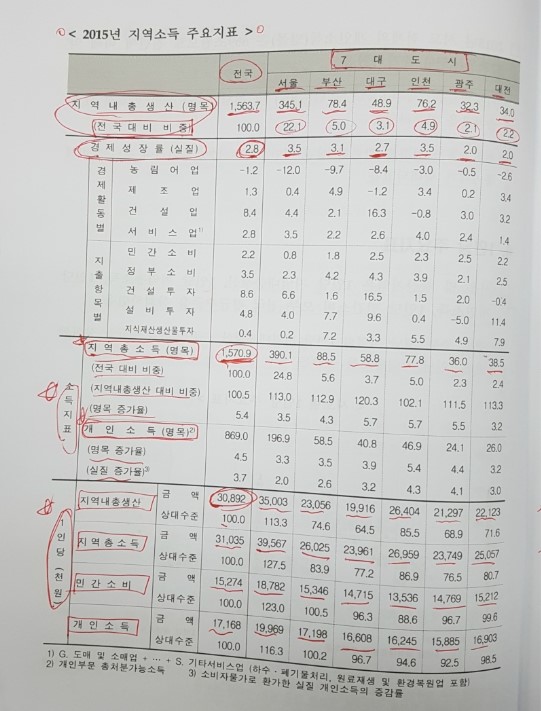 < 2015년 지역소득 주요지표 >
7 대 도 시
전국 서울 부산 대구 인천 광주 대전
지역내총생산(명목) 1,563.7 345.1 78.4 48.9 76.2 32.3 34.0
(전국대비 비중) 100.0 22.1 5.0 3.1 4.9 2.1 2.2
경제성장률(실질) 2.8 3.5 3.1 2.7 3.5 2.0 2.0
경제활동별
농림어업 -1.2 -12.0 -9.7 -8.4 -3.0 -0.5 -2.6
제조업 1.3 0.4 4.9 -1.2 3.4 0.2 3.4
건설업 8.4 4.4 2.1 16.3 -0.8 3.0 3.2
서비스업1) 2.8 3.5 2.2 2.6 4.0 2.4 1.4
지출항목별
민간소비 2.2 0.8 1.8 2.5 2.3 2.5 2.2
정부소비 3.5 2.3 4.2 4.3 3.9 2.1 2.5
건설투자 8.6 6.6 1.6 16.5 1.5 2.0 -0.4
설비투자 4.8 4.0 7.7 9.6 0.4 -5.0 11.4
지식재산생산물투자 0.4 0.2 7.2 3.3 5.5 4.9 7.9
소득지표
지역총소득(명목) 1,570.9 390.1 88.5 58.8 77.8 36.0 38.5
(전국 대비 비중) 100.0 24.8 5.6 3.7 5.0 2.3 2.4
(지역내총생산 대비 비중) 100.5 113.0 112.9 120.3 102.1 111.5 113.3
(명목 증가율) 5.4 3.5 4.3 5.7 5.7 5.5 3.2
개인소득(명목)2) 869.0 196.9 58.5 40.8 46.9 24.1 26.0
(명목 증가율) 4.5 3.3 3.5 3.9 5.4 4.4 3.2
(실질 증가율)3) 3.7 2.0 2.6 3.2 4.3 4.1 3.0
1인당(천원)
지역내총생산 금 액 30,892 35,003 23,056 19,916 26,404 21,297 22,123
상대수준 100.0 113.3 74.6 64.5 85.5 68.9 71.6
지역총소득 금 액 31,035 39,567 26,025 23,961 26,959 23,749 25,057
상대수준 100.0 127.5 83.9 77.2 86.9 76.5 80.7
민간소비 금 액 15,274 18,782 15,346 14,715 13,536 14,769 15,212
상대수준 100.0 123.0 100.5 96.3 88.6 96.7 99.6
개인소득 금 액 17,168 19,969 17,198 16,608 16,245 15,885 16,903
상대수준 100.0 116.3 100.2 96.7 94.6 92.5 98.5
1) G. 도매 및 소매업 + … + S. 기타서비스업 (하수·폐기물처리, 원료재생 및 환경복원업 포함)
2) 개인부문 총처분가능소득 3) 소비자물가로 환가한 실질 개인소득의 증감률